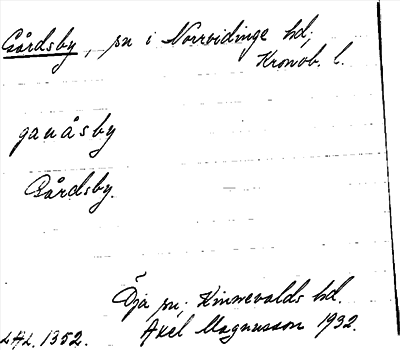 Gårdsby, sn i Norrvidinge hd,
Kronob. l.
gauåsby
Gårdsby.
Öja sn, Kinnevalds hd.
LAL 1352. Axel Magnusson 1932.